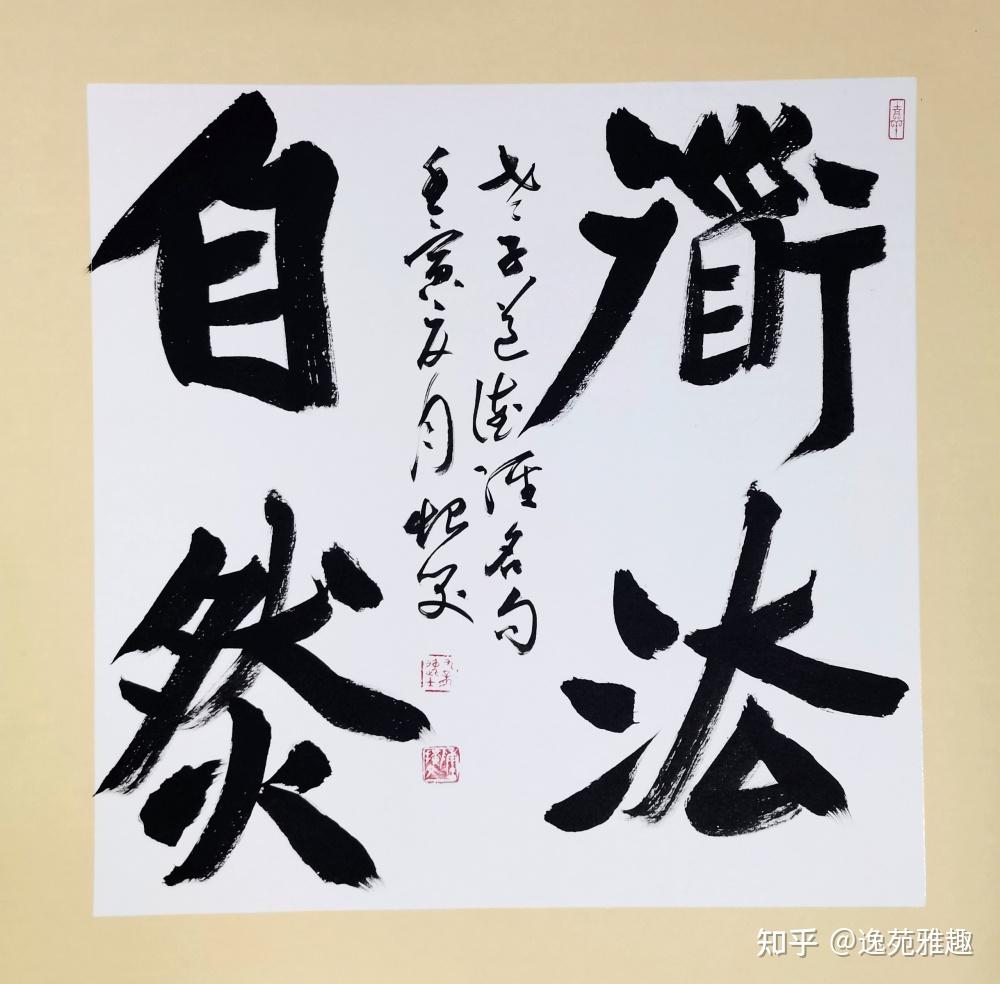 衜法
老子道德经名句
壬寅夏月
自然
知乎 @逸苑雅趣